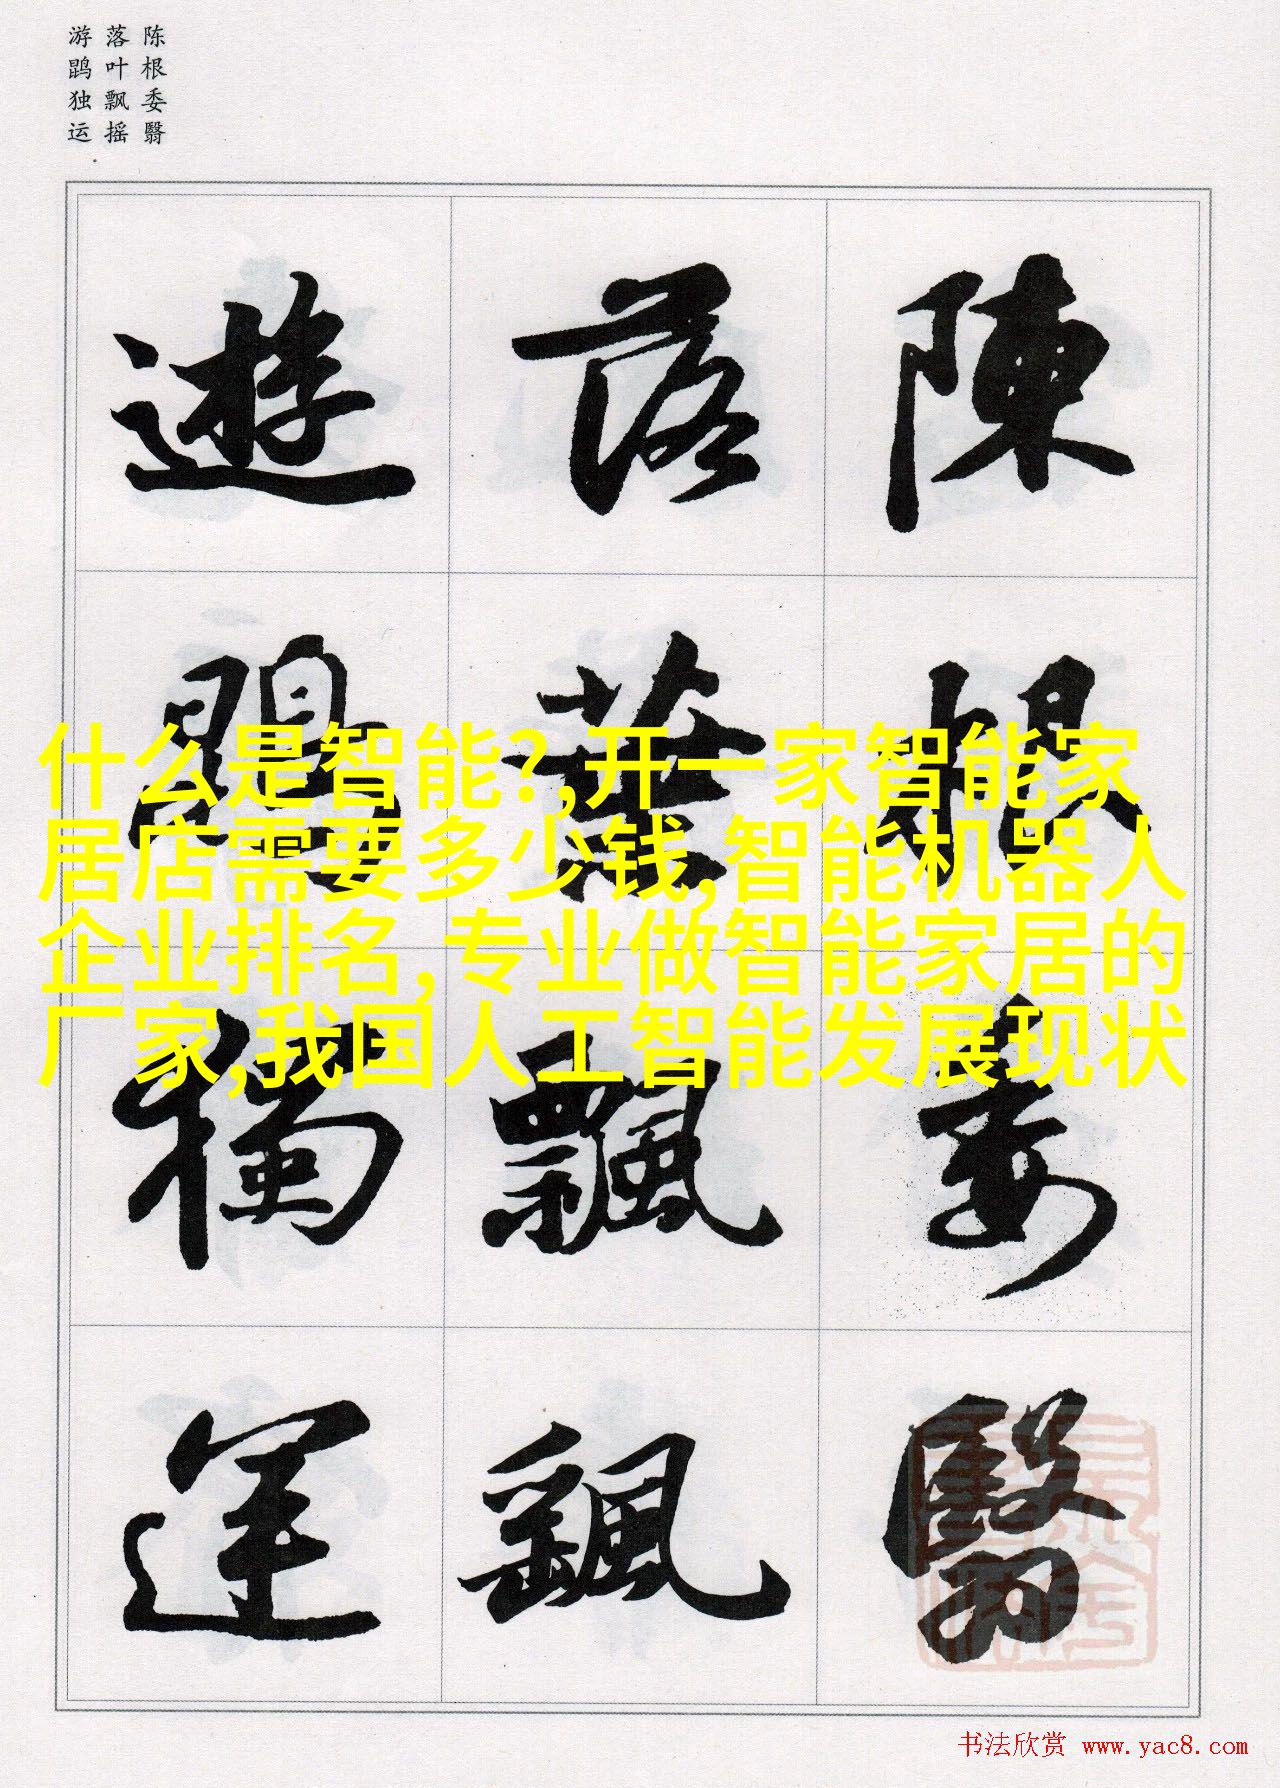 陈根委翳
落叶飘摇
游鹍独运
陳根委翳
落葉飄颻
遊鵾獨運
什么是智能?,开一家智能家
居店需要多少钱,智能机器人
企业排名,专业做智能家居的
厂家,我国人工智能发展现状
书法欣赏 www.yac8.com